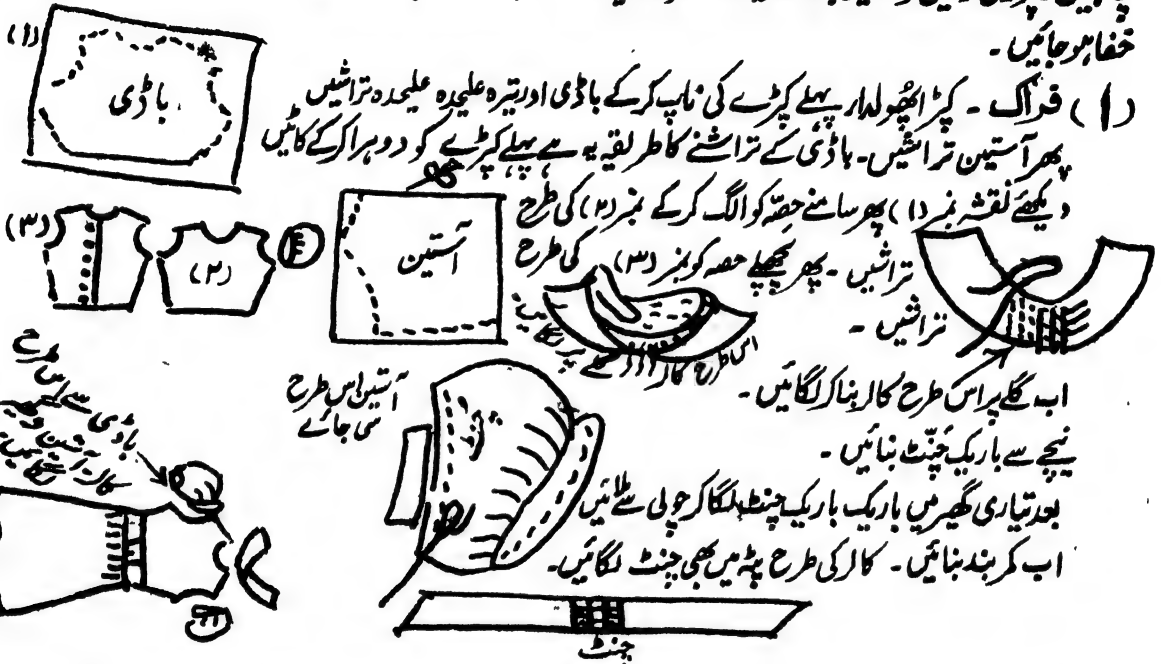 خفا ہو جائیں ۔
(۱) فراک ۔ کپڑا پھولدار پہلے کپڑے کی ناپ کرکے باڈی اور تیرہ علیحدہ علیحدہ تراشیں
پھر آستین تراشیں ۔ باڈی کے تراشنے کا طریقہ یہ ہے پہلے کپڑے کو دوہرا کرکے کاٹیں
دیکھئے نقشہ نمبر (۱) پھر سامنے حصّہ کو الگ کرکے نمبر (۲) کی طرح
تراشیں ۔ پھر پچھلے حصہ کو نمبر (۳) کی طرح
تراشیں ۔
اب گلے پر اس طرح کالر بنا کر لگائیں ۔
نیچے سے باریک چُنّٹ بنائیں ۔
بعد تیاری گھیر میں باریک باریک چنٹ لگا کر چولی سے ملائیں
اب کمر بند بنائیں ۔ کالر کی طرح پٹہ میں بھی چنٹ لگائیں ۔
(۱)
باڈی
(۳)
(۲)
آستین
اس طرح کالر گلے پر لگائیں
آستین اس طرح
سی جائے
باڈی سے اس طرح
کالر آستین
چنٹ